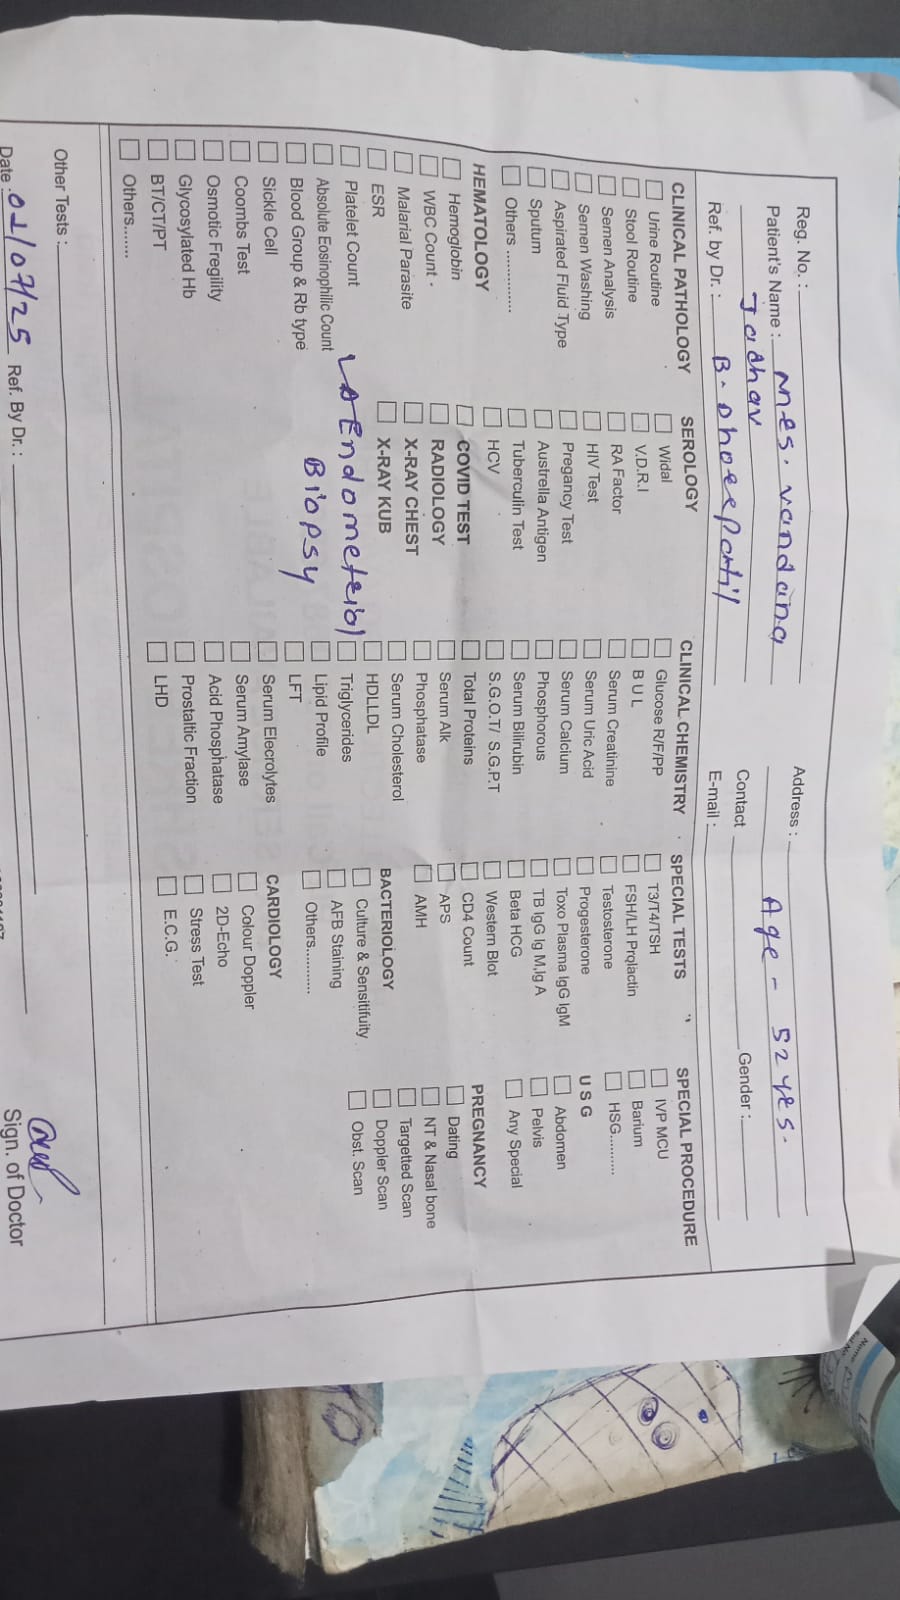 Reg. No. :
Address :
Patient's Name : Mrs. Vandana
Age - 52 yrs.
Jadhav
Contact
Gender :
Ref. by Dr. : B. Dhoreepatil
E-mail :
CLINICAL PATHOLOGY
Urine Routine
Stool Routine
Semen Analysis
Semen Washing
Aspirated Fluid Type
Sputum
Others ............
HEMATOLOGY
Hemoglobin
WBC Count
Malarial Parasite
ESR
Platelet Count
Absolute Eosinophilic Count
Blood Group & Rb type
Sickle Cell
Coombs Test
Osmotic Fregility
Glycosylated Hb
BT/CT/PT
Others.......
SEROLOGY
Widal
V.D.R.I
RA Factor
HIV Test
Pregancy Test
Austrella Antigen
Tuberculin Test
HCV
COVID TEST
RADIOLOGY
X-RAY CHEST
X-RAY KUB
Endometrial
Biopsy
CLINICAL CHEMISTRY
Glucose R/F/PP
B U L
Serum Creatinine
Serum Uric Acid
Serum Calcium
Phosphorous
Serum Bilirubin
S.G.O.T/ S.G.P.T
Total Proteins
Serum Alk
Phosphatase
Serum Cholesterol
HDLLDL
Triglycerides
Lipid Profile
LFT
Serum Elecrolytes
Serum Amylase
Acid Phosphatase
Prostaltic Fraction
LHD
SPECIAL TESTS
T3/T4/TSH
FSH/LH Prolactin
Testosterone
Progesterone
Toxo Plasma IgG IgM
TB IgG Ig M,Ig A
Beta HCG
Western Blot
CD4 Count
APS
AMH
BACTERIOLOGY
Culture & Sensitifuity
AFB Staining
Others...........
CARDIOLOGY
Colour Doppler
2D-Echo
Stress Test
E.C.G.
SPECIAL PROCEDURE
IVP MCU
Barium
HSG.........
U S G
Abdomen
Pelvis
Any Special
PREGNANCY
Dating
NT & Nasal bone
Targetted Scan
Doppler Scan
Obst. Scan
Other Tests :
Date : 02/07/25 Ref. By Dr. :
Sign. of Doctor